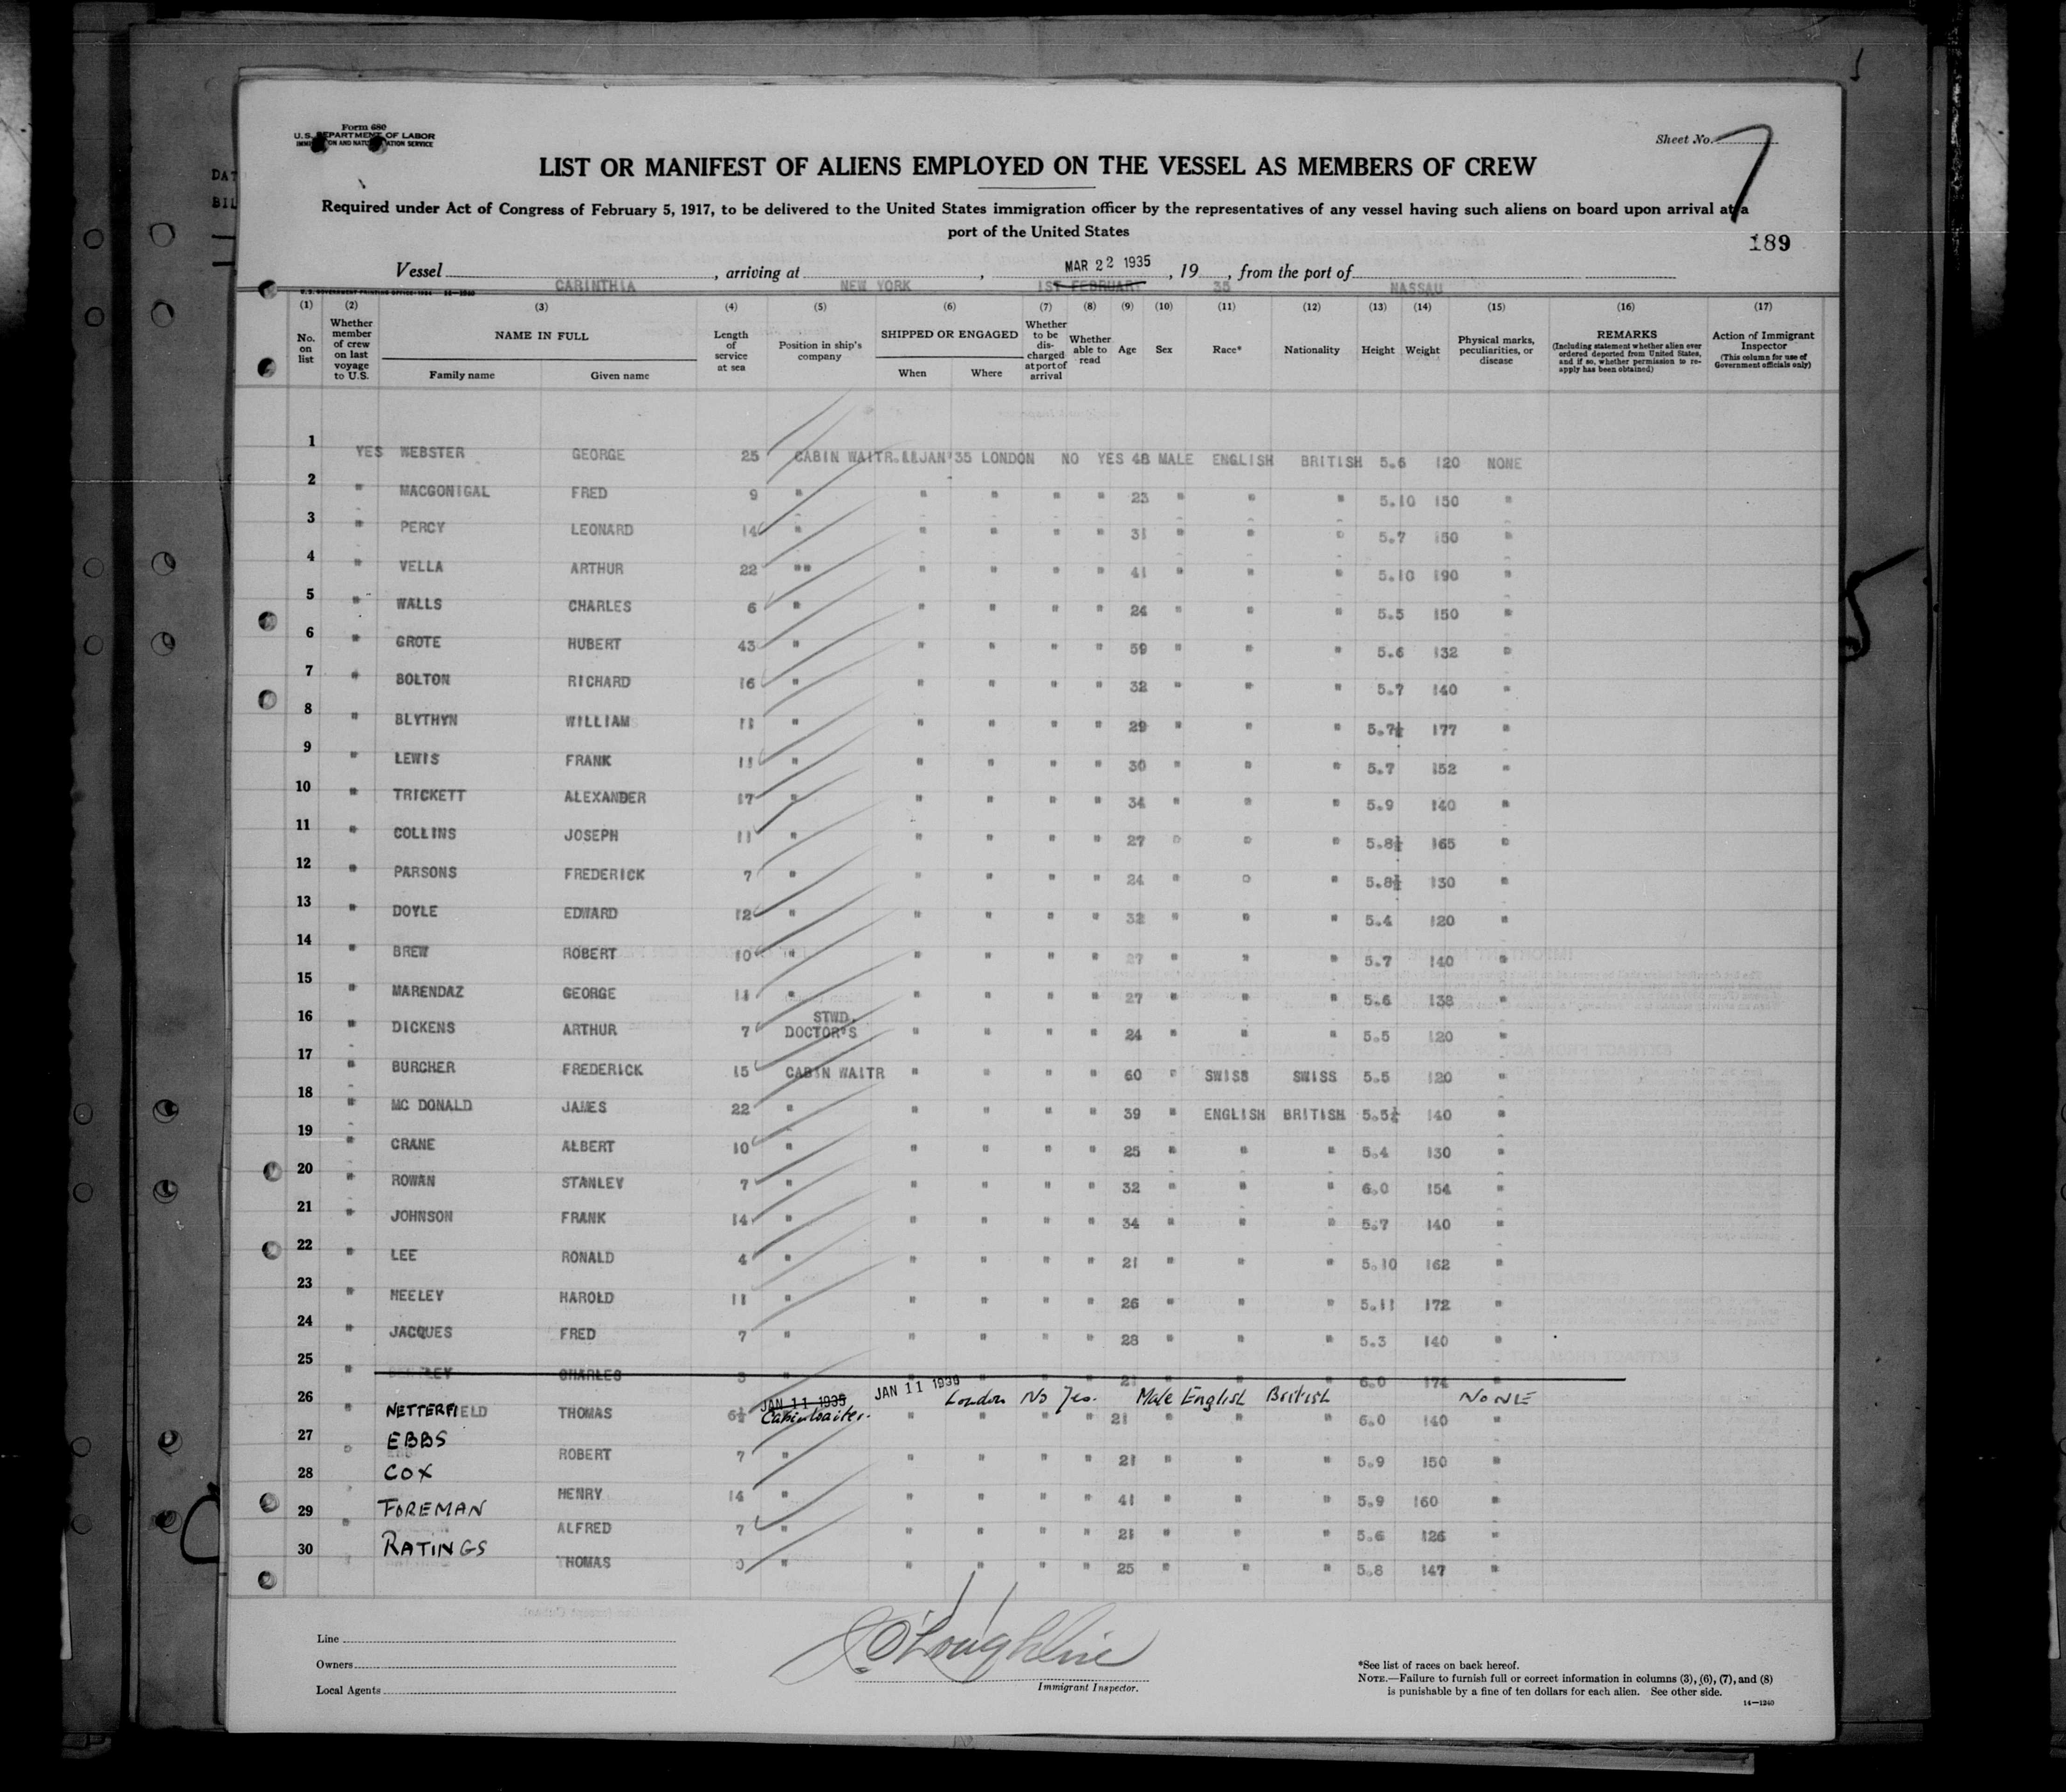 Form 680
U.S. DEPARTMENT OF LABOR
Sheet No. 7
LIST OR MANIFEST OF ALIENS EMPLOYED ON THE VESSEL AS MEMBERS OF CREW
Required under Act of Congress of February 5, 1917, to be delivered to the United States immigration officer by the representatives of any vessel having such aliens on board upon arrival at a
port of the United States
189
Vessel CARINTHIA, arriving at NEW YORK, MAR 22 1935 1ST FEBRUARY, 19 35, from the port of NASSAU
(1) (2) (3) (4) (5) (6) (7) (8) (9) (10) (11) (12) (13) (14) (15) (16) (17)
No. on list
Whether member of crew on last voyage to U.S.
NAME IN FULL
Family name Given name
Length of service at sea
Position in ship's company
SHIPPED OR ENGAGED
When Where
Whether to be discharged at port of arrival
Whether able to read
Age Sex Race* Nationality Height Weight
Physical marks, peculiarities, or disease
REMARKS
(Including statement whether alien ever ordered deported from United States, and if so, whether permission to re-apply has been obtained)
Action of Immigrant Inspector
(This column for use of Government officials only)
1 YES WEBSTER GEORGE 25 CABIN WAITR. 11JAN'35 LONDON NO YES 48 MALE ENGLISH BRITISH 5.6 120 NONE
2 " MACGONIGAL FRED 9 " " " " " 23 " " " 5.10 150 "
3 " PERCY LEONARD 14 " " " " " 31 " " " 5.7 150 "
4 " VELLA ARTHUR 22 "" " " " " 41 " " " 5.10 190 "
5 " WALLS CHARLES 6 " " " " " 24 " " " 5.5 150 "
6 " GROTE HUBERT 43 " " " " " 59 " " " 5.6 132 "
7 " BOLTON RICHARD 16 " " " " " 32 " " " 5.7 140 "
8 " BLYTHYN WILLIAM 11 " " " " " 29 " " " 5.7½ 177 "
9 " LEWIS FRANK 11 " " " " " 30 " " " 5.7 152 "
10 " TRICKETT ALEXANDER 17 " " " " " 34 " " " 5.9 140 "
11 " COLLINS JOSEPH 11 " " " " " 27 " " " 5.8½ 165 "
12 " PARSONS FREDERICK 7 " " " " " 24 " " " 5.8½ 130 "
13 " DOYLE EDWARD 12 " " " " " 32 " " " 5.4 120 "
14 " BREW ROBERT 10 " " " " " 27 " " " 5.7 140 "
15 " MARENDAZ GEORGE 11 " " " " " 27 " " " 5.6 138 "
16 " DICKENS ARTHUR 7 STWD. DOCTOR'S " " " " 24 " " " 5.5 120 "
17 " BURCHER FREDERICK 15 CABIN WAITR " " " " 60 " SWISS SWISS 5.5 120 "
18 " MC DONALD JAMES 22 " " " " " 39 " ENGLISH BRITISH 5.5½ 140 "
19 " CRANE ALBERT 10 " " " " " 25 " " " 5.4 130 "
20 " ROWAN STANLEY 7 " " " " " 32 " " " 6.0 154 "
21 " JOHNSON FRANK 14 " " " " " 34 " " " 5.7 140 "
22 " LEE RONALD 4 " " " " " 21 " " " 5.10 162 "
23 " HEELEY HAROLD 11 " " " " " 26 " " " 5.11 172 "
24 " JACQUES FRED 7 " " " " " 28 " " " 5.3 140 "
25 " CHARLES 21 6.0 174
JAN 11 1935 JAN 11 1935 London No Yes. Male English British NONE
26 NETTERFIELD THOMAS 6½ Cabin waiter. " " " " 21 " " " 6.0 140 "
27 " EBBS ROBERT 7 " " " " " 21 " " " 5.9 150 "
28 " COX HENRY 14 " " " " " 41 " " " 5.9 160 "
29 " FOREMAN ALFRED 7 " " " " " 21 " " " 5.6 126 "
30 " RATINGS THOMAS " " " " " 25 " " " 5.8 147 "
Line
Owners
Local Agents
O'Loughline
Immigrant Inspector.
*See list of races on back hereof.
NOTE.—Failure to furnish full or correct information in columns (3), (6), (7), and (8)
is punishable by a fine of ten dollars for each alien. See other side.
14—1240